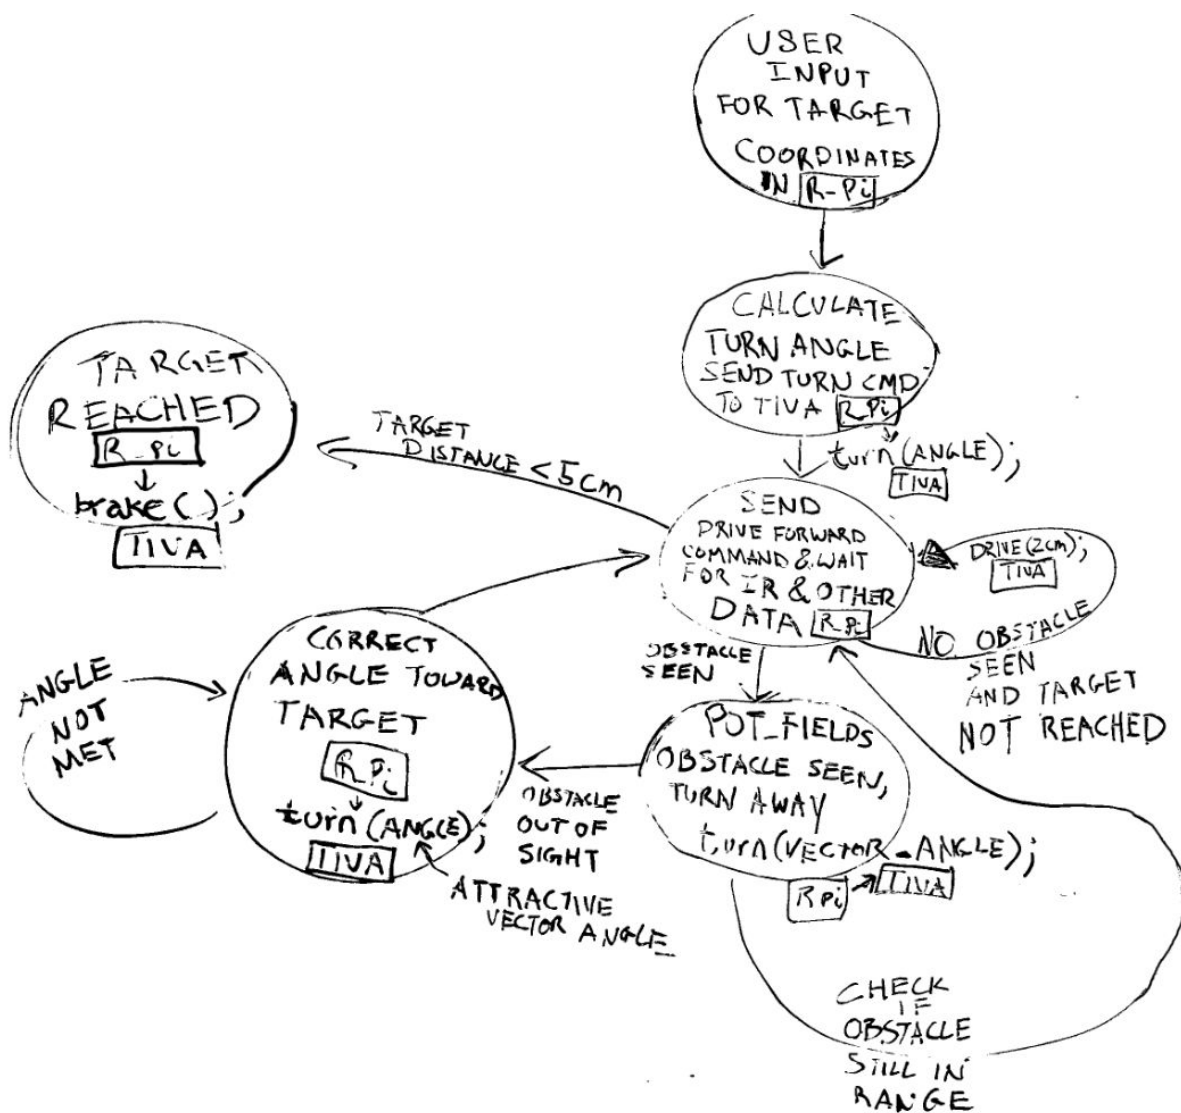 USER
INPUT
FOR TARGET
COORDINATES
IN R_Pi
CALCULATE
TURN ANGLE
SEND TURN CMD
TO TIVA R_Pi
turn(ANGLE);
TIVA
TARGET
REACHED
R_Pi
brake();
TIVA
TARGET
DISTANCE <5cm
SEND
DRIVE FORWARD
COMMAND & WAIT
FOR IR & OTHER
DATA R_Pi
DRIVE(2cm);
TIVA
NO OBSTACLE
SEEN
AND TARGET
NOT REACHED
OBSTACLE
SEEN
CORRECT
ANGLE TOWARD
TARGET
R_Pi
turn(ANGLE);
TIVA
ANGLE
NOT
MET
ATTRACTIVE
VECTOR ANGLE
OBSTACLE
OUT OF
SIGHT
POT_FIELDS
OBSTACLE SEEN,
TURN AWAY
turn(VECTOR_ANGLE);
R Pi TIVA
CHECK
IF
OBSTACLE
STILL IN
RANGE